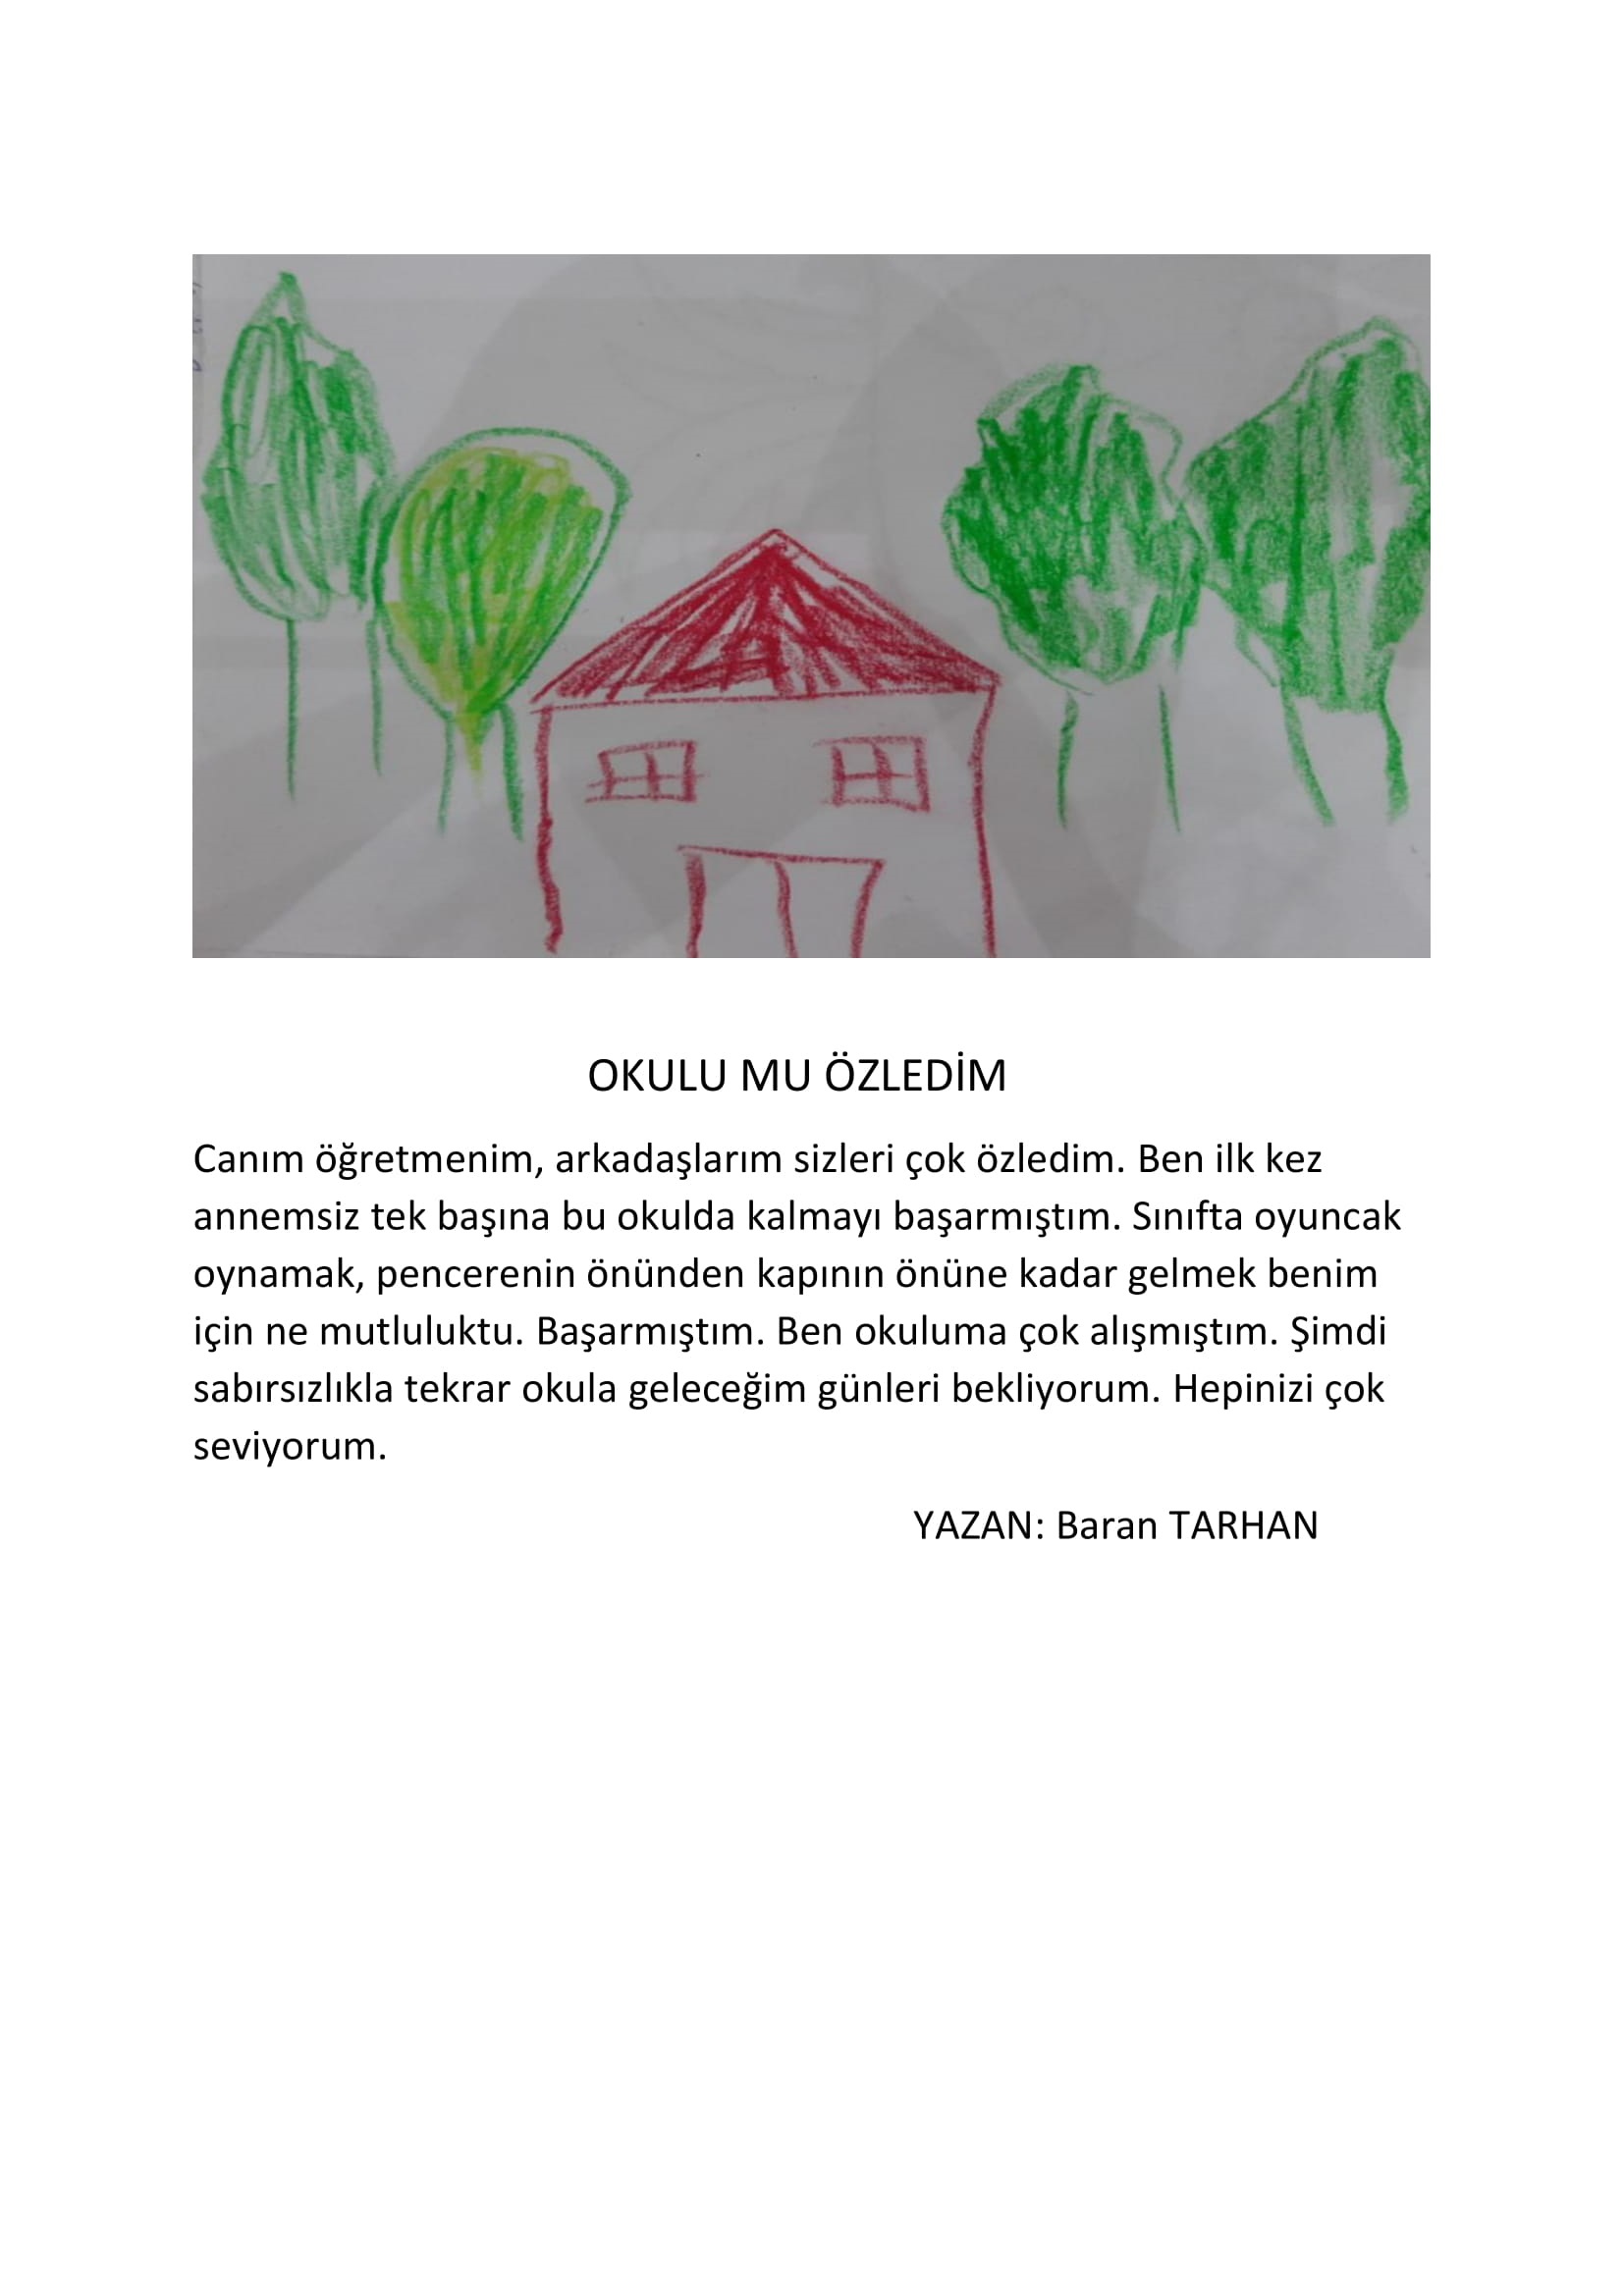 OKULU MU ÖZLEDİM
Canım öğretmenim, arkadaşlarım sizleri çok özledim. Ben ilk kez
annemsiz tek başına bu okulda kalmayı başarmıştım. Sınıfta oyuncak
oynamak, pencerenin önünden kapının önüne kadar gelmek benim
için ne mutluluktu. Başarmıştım. Ben okuluma çok alışmıştım. Şimdi
sabırsızlıkla tekrar okula geleceğim günleri bekliyorum. Hepinizi çok
seviyorum.
YAZAN: Baran TARHAN